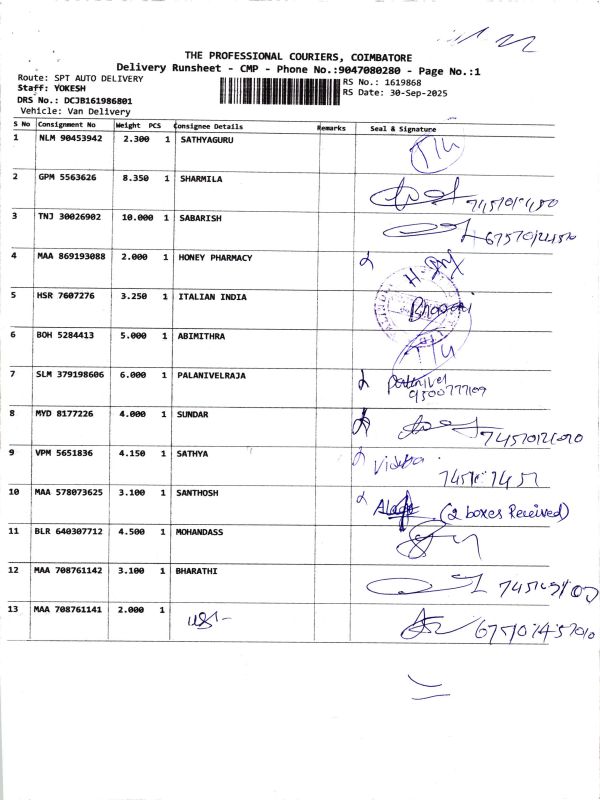 THE PROFESSIONAL COURIERS, COIMBATORE
Delivery Runsheet - CMP - Phone No.:9047080280 - Page No.:1
Route: SPT AUTO DELIVERY
RS No.: 1619868
Staff: YOKESH
RS Date: 30-Sep-2025
DRS No.: DCJB161986801
Vehicle: Van Delivery
S No Consignment No Weight PCS Consignee Details Remarks Seal & Signature
1 NLM 90453942 2.300 1 SATHYAGURU
2 GPM 5563626 8.350 1 SHARMILA
3 TNJ 30026902 10.000 1 SABARISH
4 MAA 869193088 2.000 1 HONEY PHARMACY
5 HSR 7607276 3.250 1 ITALIAN INDIA
6 BOH 5284413 5.000 1 ABIMITHRA
7 SLM 379198606 6.000 1 PALANIVELRAJA
8 MYD 8177226 4.000 1 SUNDAR
9 VPM 5651836 4.150 1 SATHYA
10 MAA 578073625 3.100 1 SANTHOSH (2 boxes Received)
11 BLR 640307712 4.500 1 MOHANDASS
12 MAA 708761142 3.100 1 BHARATHI
13 MAA 708761141 2.000 1